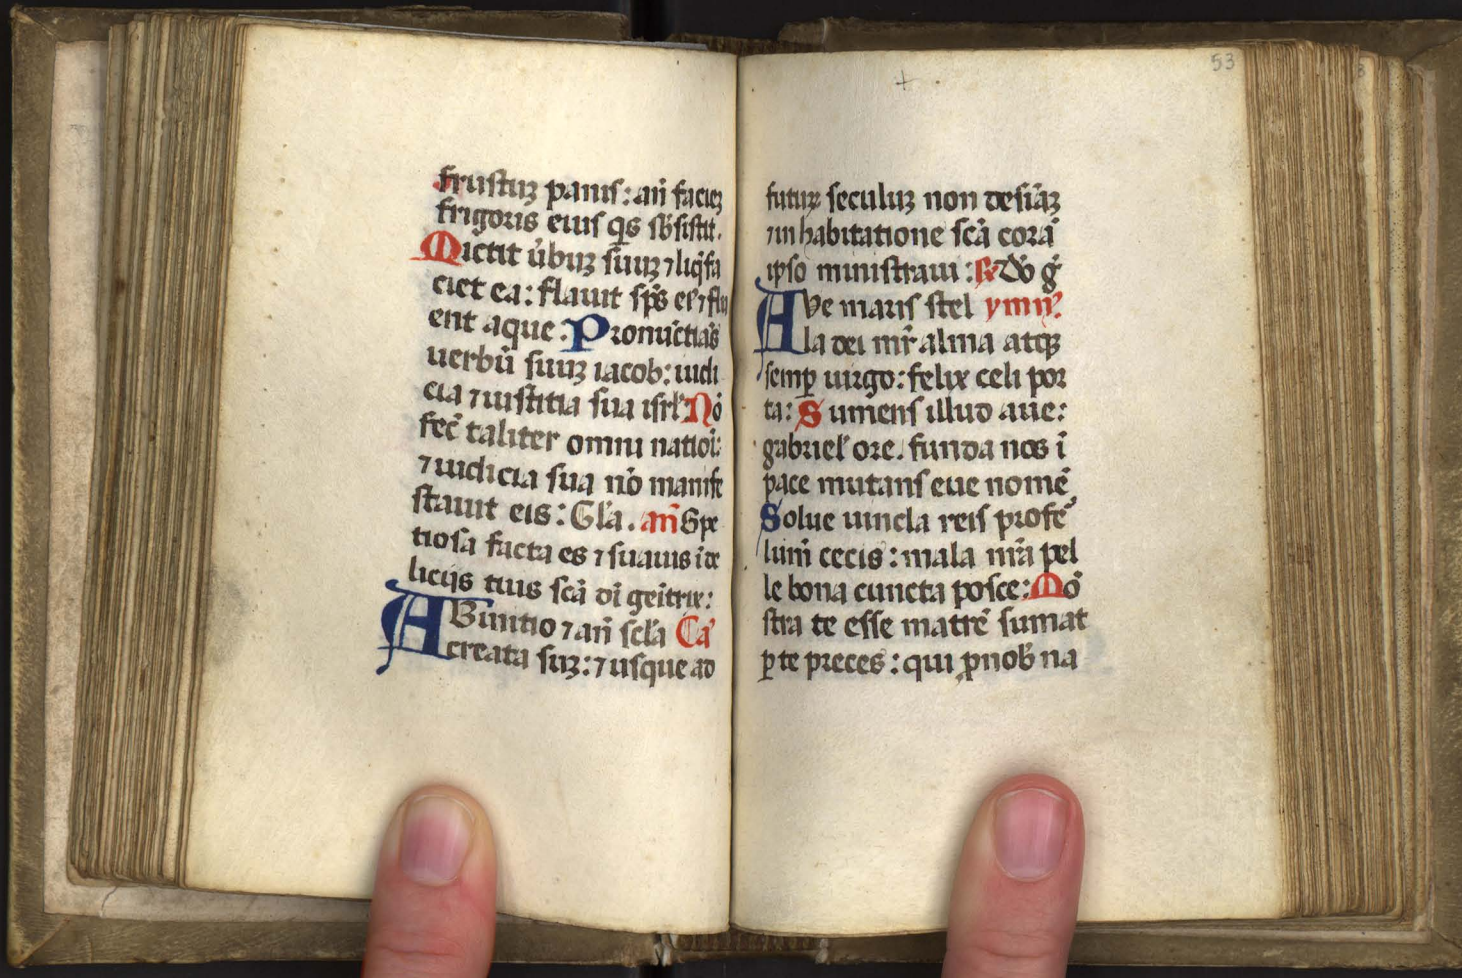 frustuʒ panis: an̄ facieʒ
frigoris eius q̄s sb̄sistit.
Mictit u̇buʒ suuʒ ⁊ liq̄fa
ciet ea: flauit sp̄s ei᷒ ⁊ flu
ent aque: Pronūctiās
uerbū suuʒ iacob: iudi
cia ⁊ iustitia sua isrl̄: Nō
fec̄ taliter omni natiōi:
⁊ iudicia sua nō manife
stauit eis: Gl̄a. an̄ Spe
tiosa facta es ⁊ suauis ī de
licijs tuis scā dī geītrix:
ABinitio ⁊ an̄ scl̄a Ca᷒
creata suʒ: ⁊ usque ad
53
futuꝝ seculuʒ non desinā
⁊ in habitatione scā corā
ipso ministraui: ℟ Dō ḡ
AVe maris stel ymn᷒.
la dei mr̄ alma atqꝫ
semꝑ uirgo: felix celi por
ta: Sumens illud aue:
gabriel᷒ ore. funda nos ī
pace mutans eue nomē
Solue uincla reis profē
lum̄ cecis: mala nr̄a pel
le bona cuncta posce: Mō
stra te esse matrē sumat
ꝑ te preces: qui ꝓ nob̄ na